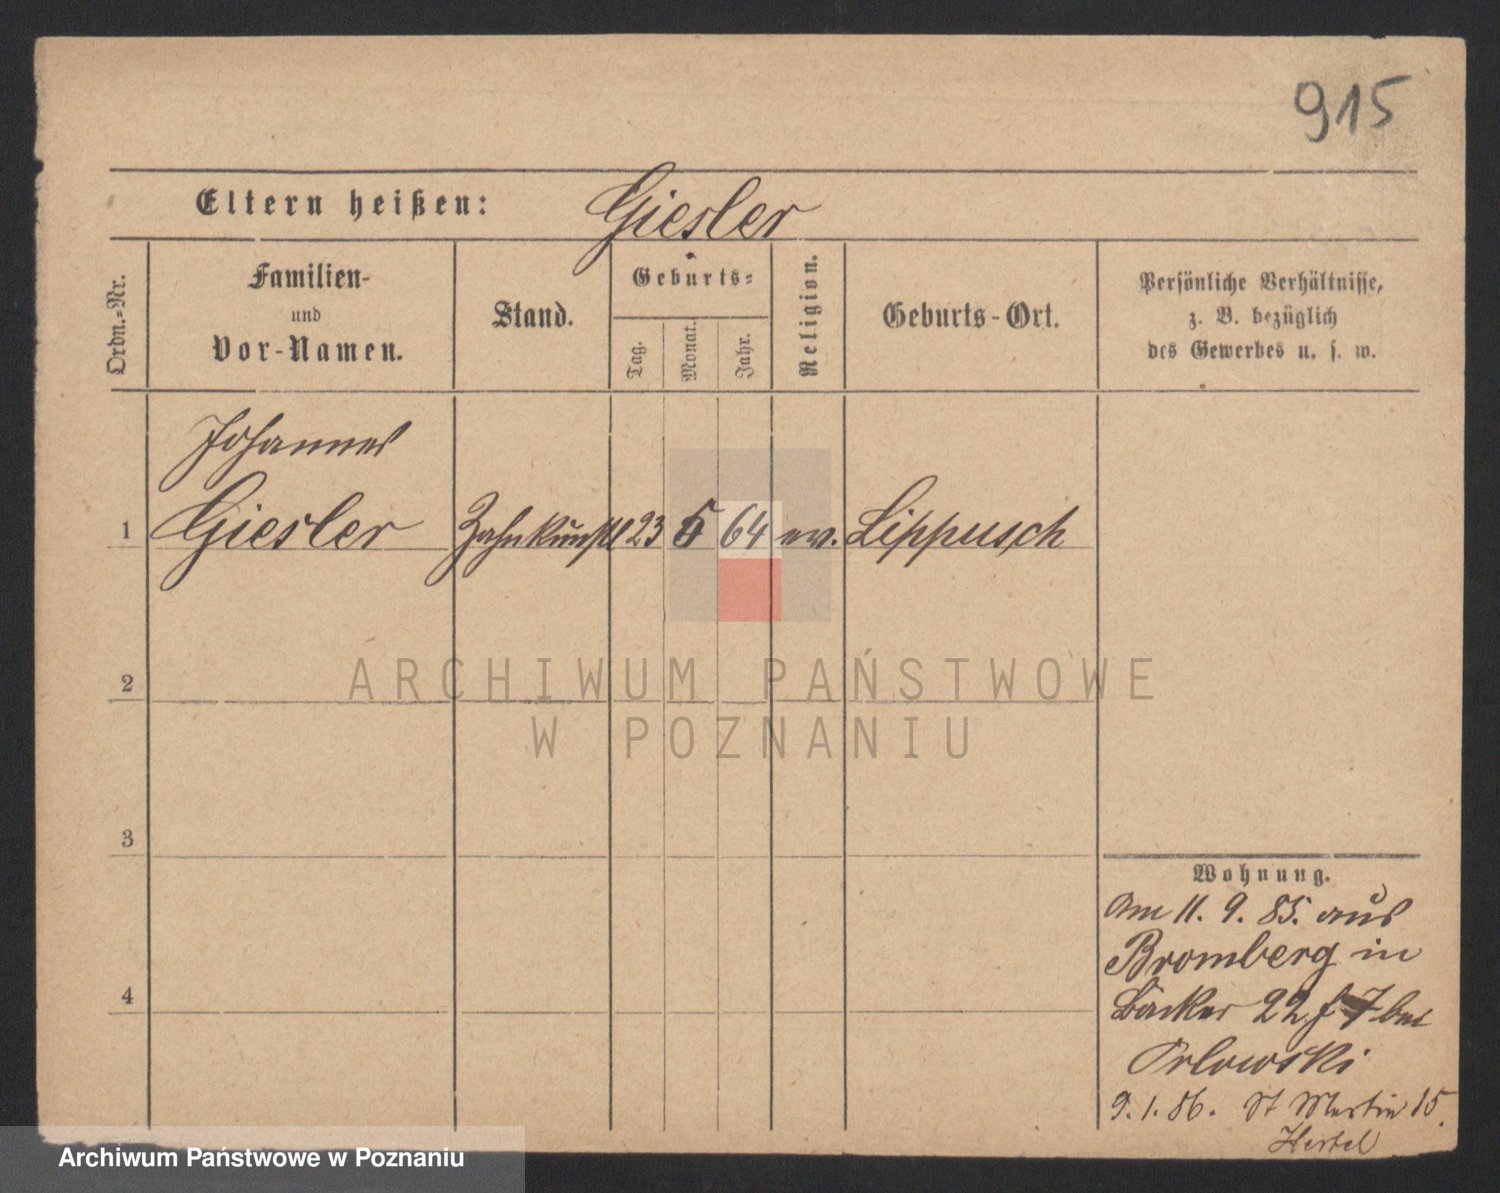 915
Eltern heißen: Giesler
Ordn.-Nr.
Familien-
und
Vor-Namen.
Stand.
Geburts-
Tag.
Monat.
Jahr.
Religion.
Geburts-Ort.
Persönliche Verhältnisse,
z. B. bezüglich
des Gewerbes u. s. w.
Johannes
1 Giesler Zahnkünstl 23 5 64 ev. Lippusch
2
ARCHIWUM PAŃSTWOWE
W POZNANIU
3
4
Wohnung.
Am 11. 9. 85. aus
Bromberg in
Bäcker 22 bei
Orlowski
9. 1. 86. St Martin 15.
Hertel
Archiwum Państwowe w Poznaniu